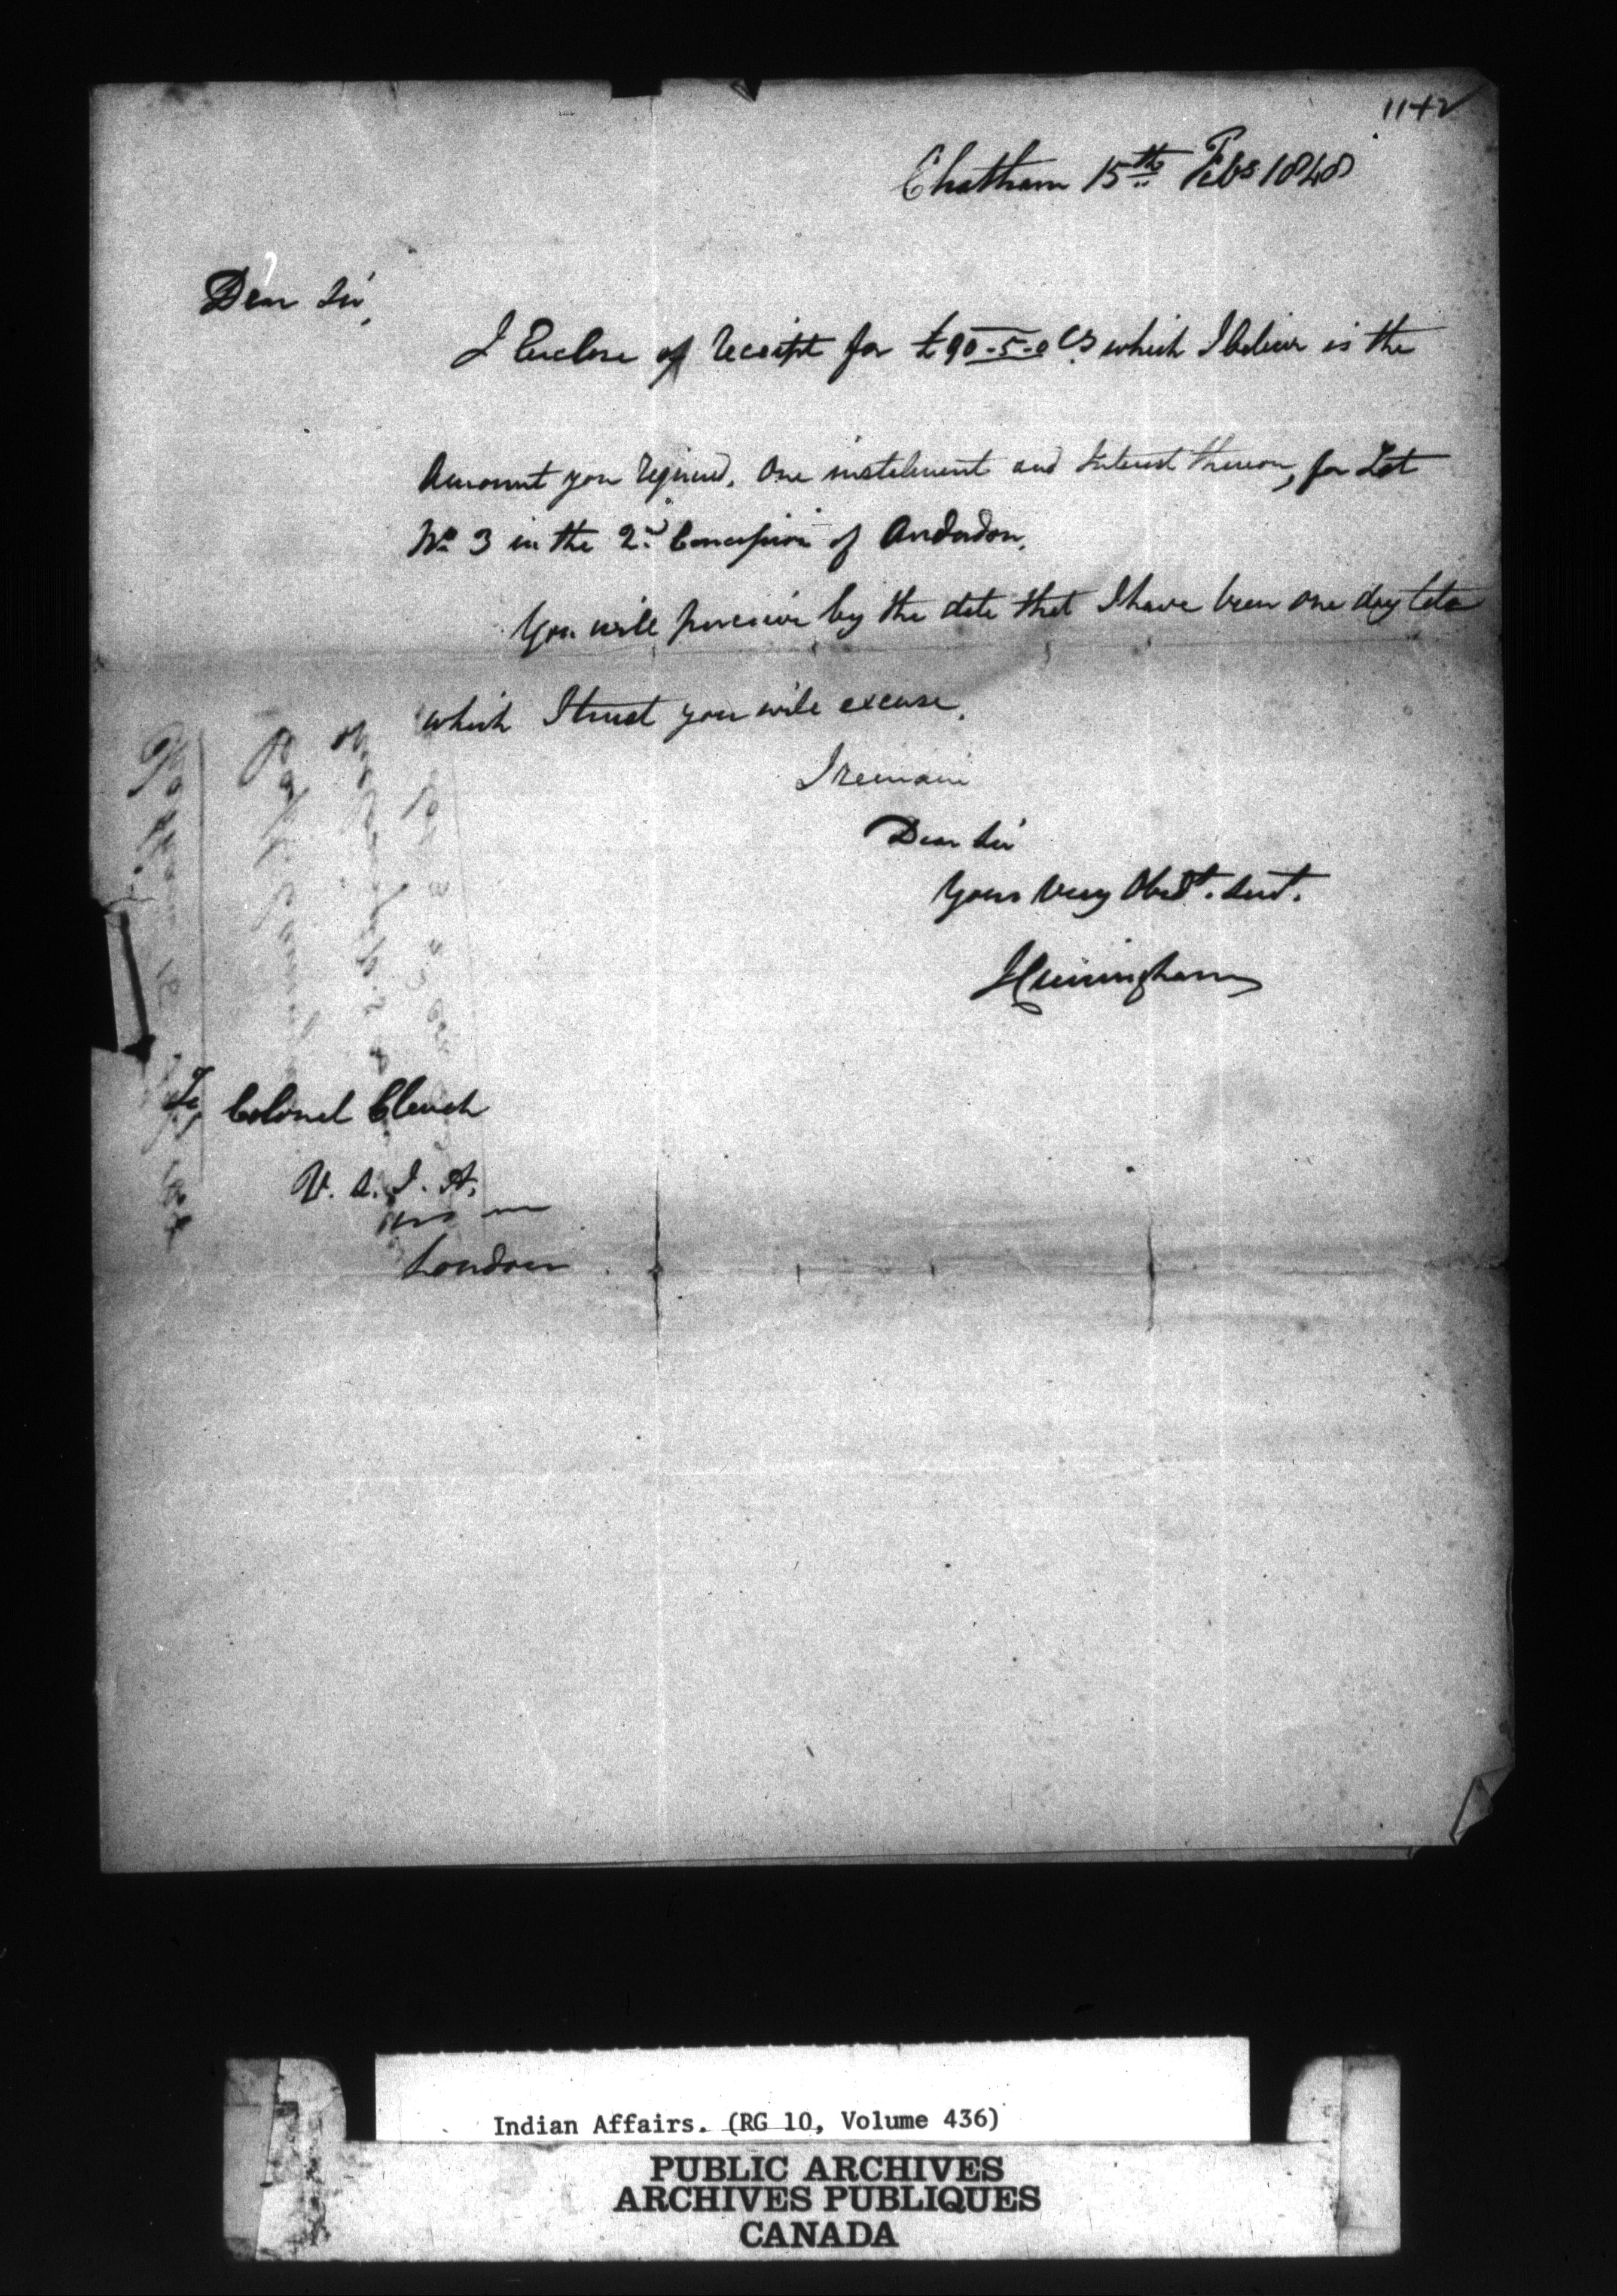 1142
Chatham 15th Feby 1848
Dear Sir,
I Enclose of Receipt for £90-5-0 Cy which I believe is the
Amount you required, One instalment and Interest thereon, for Lot
No 3 in the 2nd Concession of Anderdon.
You will perceive by the date that I have been one day late
which I trust you will excuse.
I remain
Dear Sir
Your Very Obedt. Servt.
J Cuningham
To Colonel Clench
V. S. I. A.
London
Indian Affairs. (RG 10, Volume 436)
PUBLIC ARCHIVES
ARCHIVES PUBLIQUES
CANADA